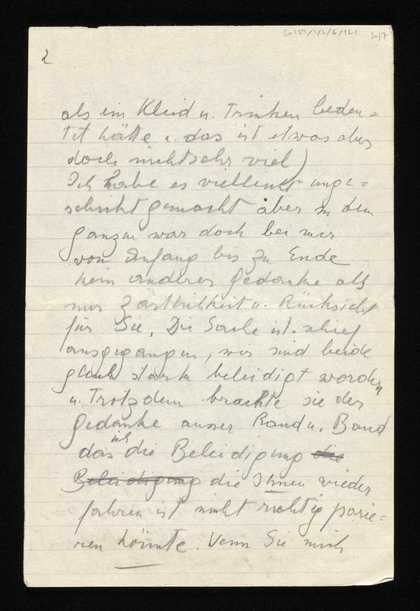 2
als ein Kleid u. Trinken beden=
tet hätte u. das ist etwas aber
doch nicht sehr viel)
Ich habe es vielleicht unge=
schickt gemacht aber in dem
ganzen war doch bei mir
von Anfang bis zu Ende
kein anderer Gedanke als
nur Zärtlichkeit u. Rücksicht
für Sie. Die Sache ist schief
ausgegangen, wir sind beide
gleich stark beleidigt worden
u. Trotzdem brachte sie der
Gedanke ausser Rand u. Band
das ich die Beleidigung die
Beleidigung die Ihnen wieder
fahren ist nicht richtig parie=
ren könnte. Wenn Sie mich